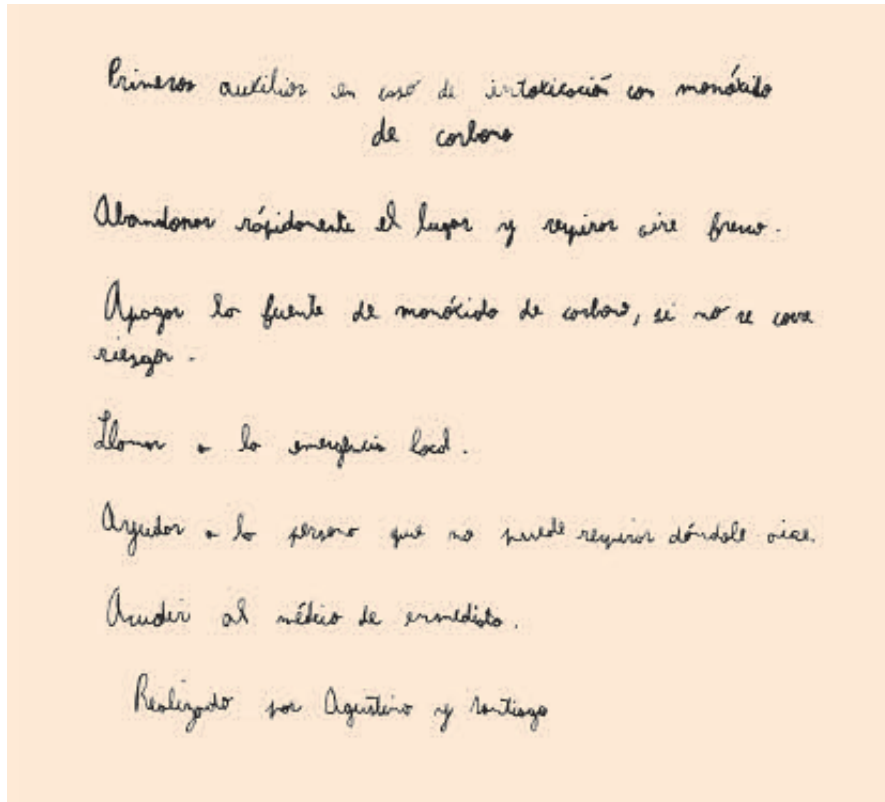 Primeros auxilios en caso de intoxicación con monóxido
de carbono
Abandonar rápidamente el lugar y respirar aire fresco.
Apagar la fuente de monóxido de carbono, si no se corre
riesgos.
Llamar a la emergencia local.
Ayudar a la persona que no puede respirar dándole aire.
Acudir al médico de enmediato.
Realizado por Agustina y Santiago